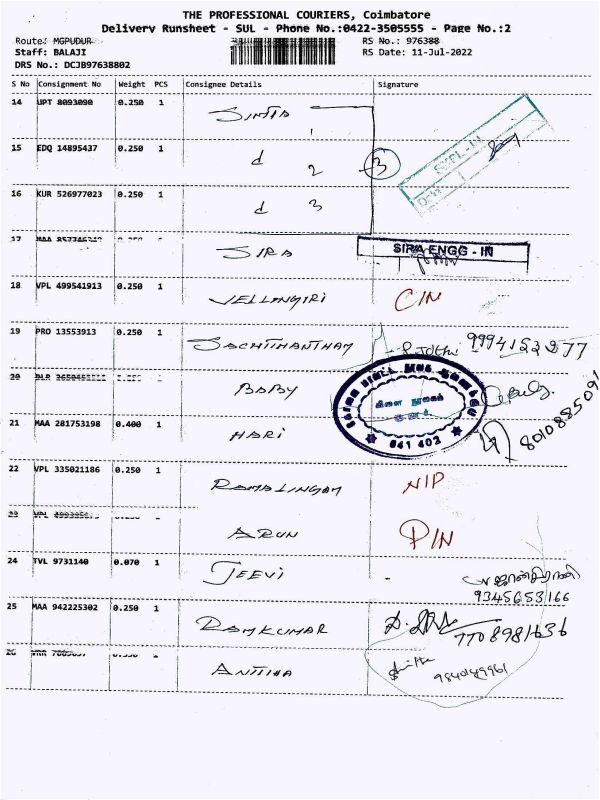 THE PROFESSIONAL COURIERS, Coimbatore
Delivery Runsheet - SUL - Phone No.:0422-3505555 - Page No.:2
Route: MGPUDUR RS No.: 976388
Staff: BALAJI RS Date: 11-Jul-2022
DRS No.: DCJB97638802
S No Consignment No Weight PCS Consignee Details Signature
14 UPT 8093090 0.250 1
1
15 EDQ 14895437 0.250 1 d 2 3
16 KUR 526977023 0.250 1 d 3
17 MAA SIRA SIRA ENGG - IN
18 VPL 499541913 0.250 1 VELLINGIRI CIN
19 PRO 13553913 0.250 1 SACHITHANTHAM Jothi 9994152277
20 BABY
641 402
21 MAA 281753198 0.400 1 HARI
22 VPL 335021186 0.250 1 RAMALINGAM NIP
23 VPL ARUN PIN
24 TVL 9731140 0.070 1 JEEVI
9345653166
25 MAA 942225302 0.250 1 RAMKUMAR
7708981636
26 ANITHA Anitha